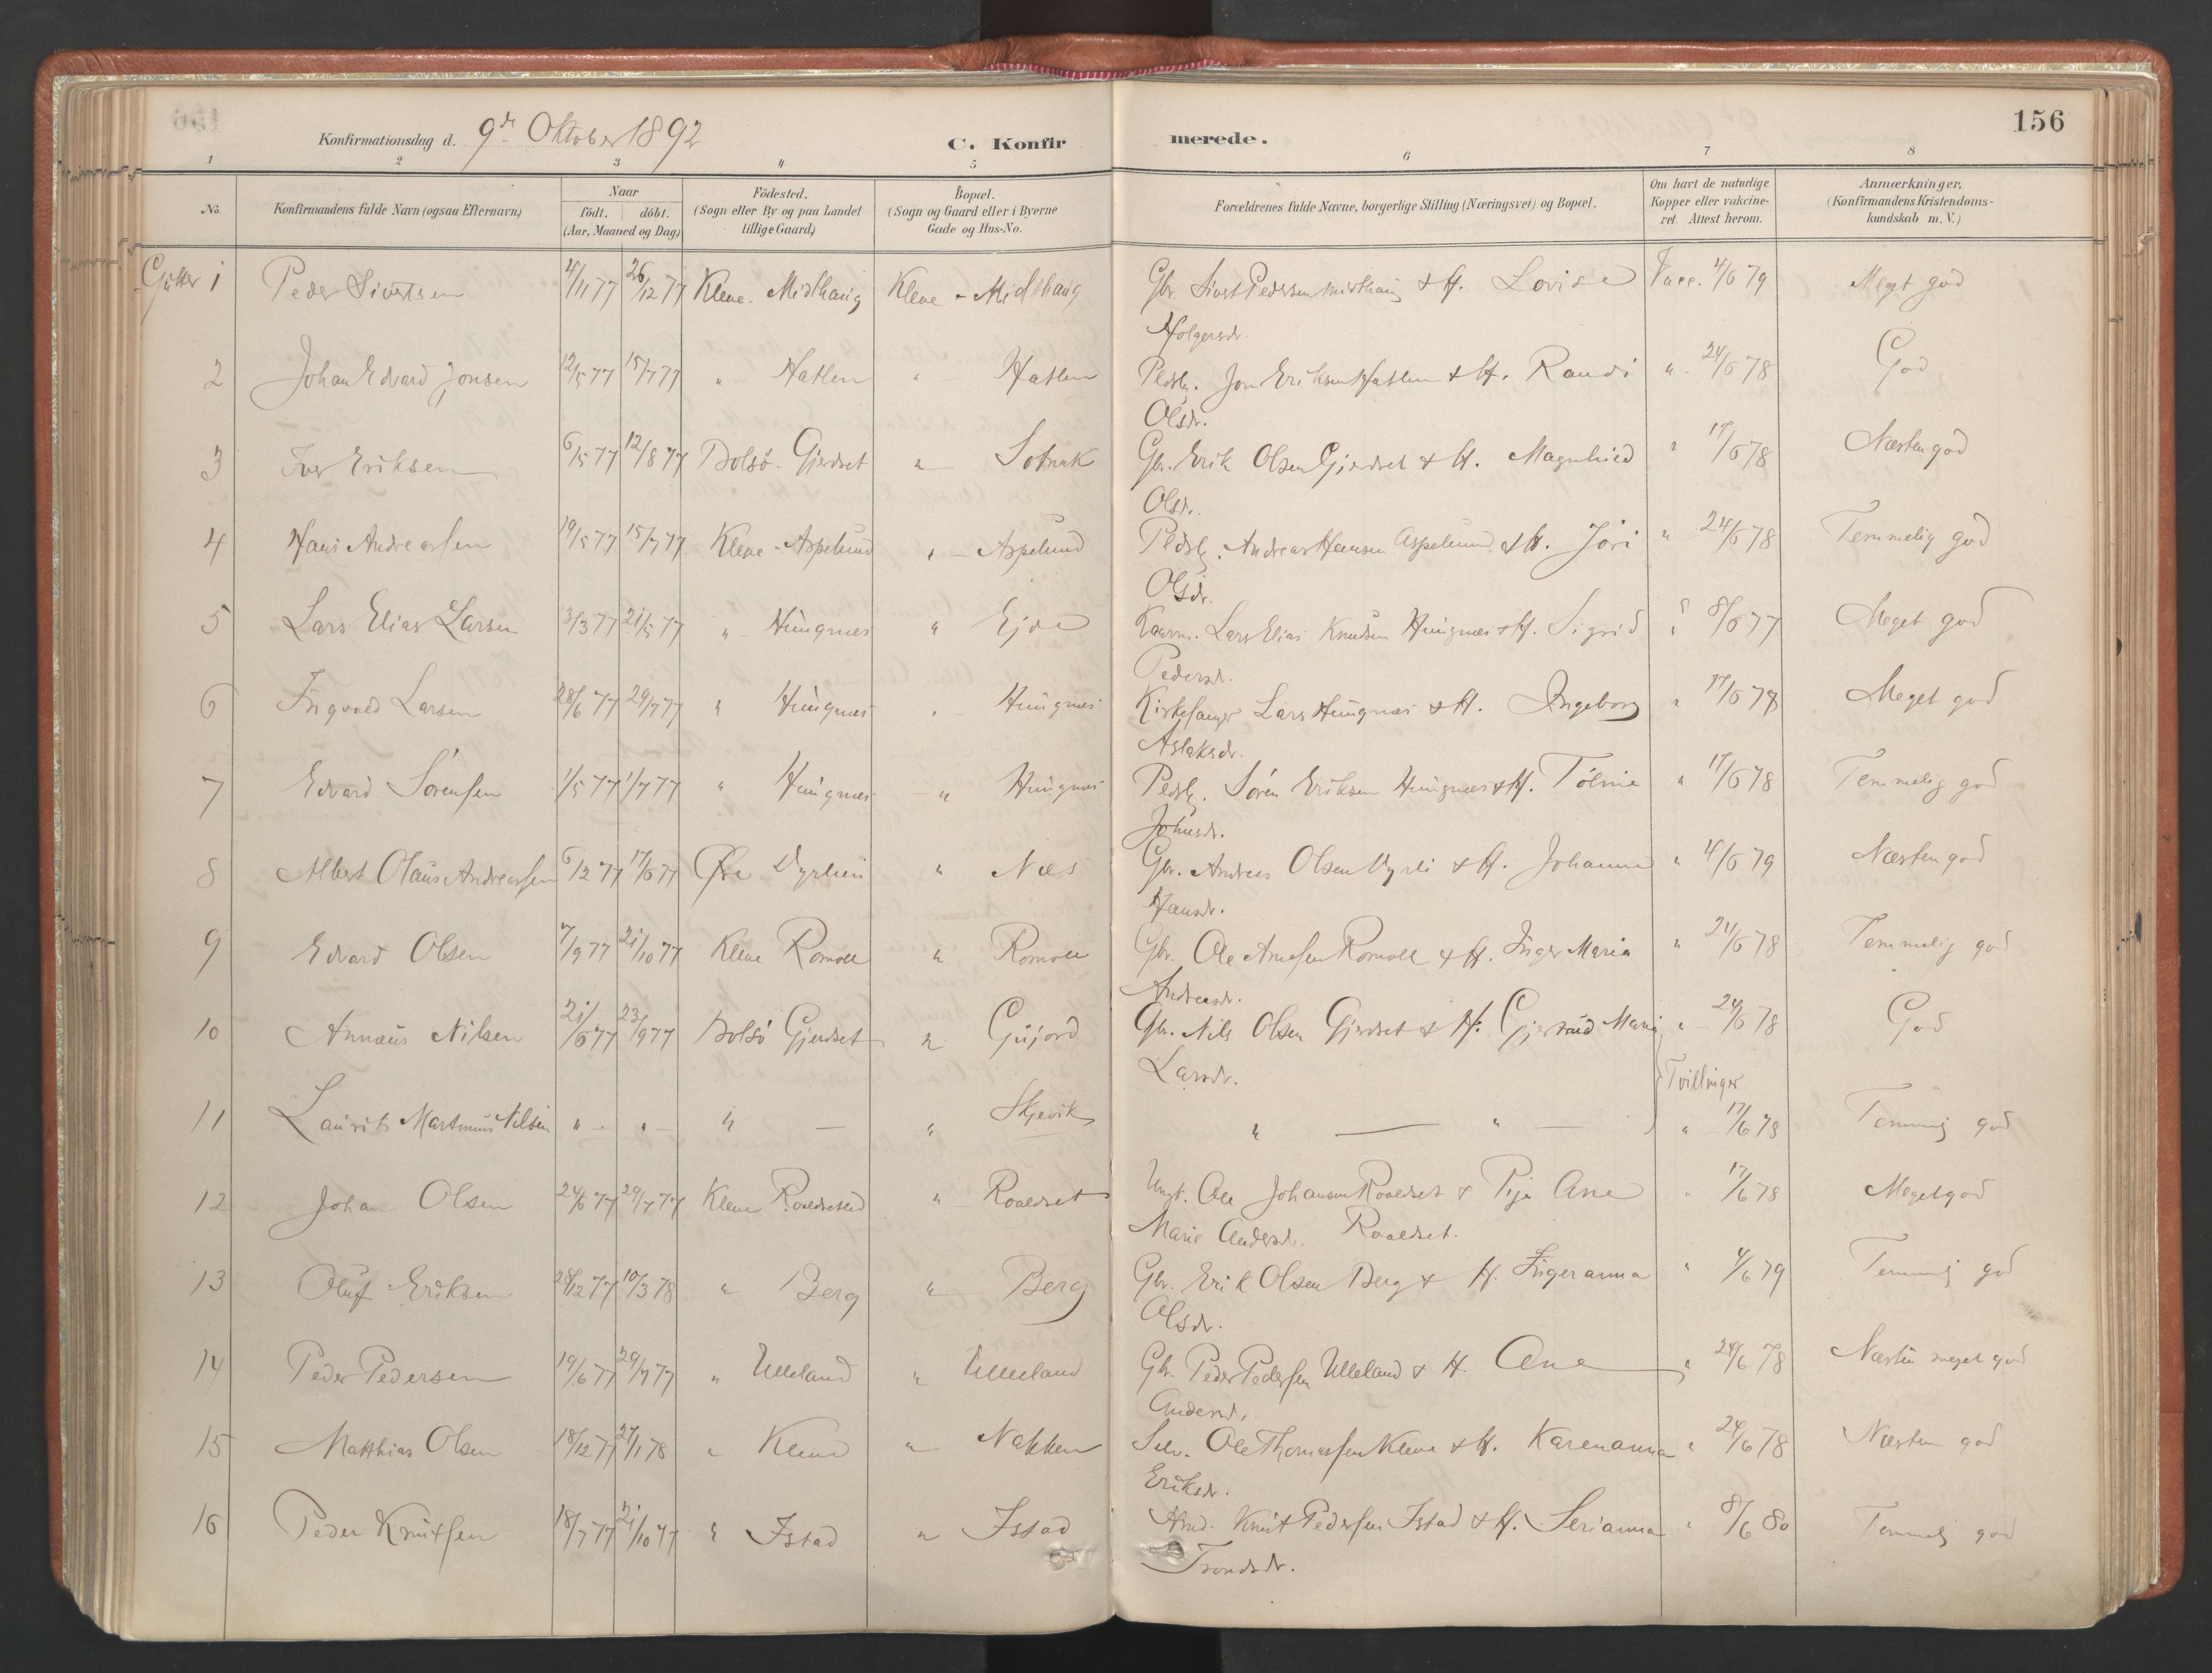 156
Konfirmationsdag d. 9de Oktober 1892
C. Konfir merede.
1 2 3 4 5 6 7 8
No.
Konfirmandens fulde Navn (ogsaa Efternavn)
Naar
födt. döbt.
(Aar, Maaned og Dag)
Födested.
(Sogn eller By og paa Landet
tillige Gaard)
Bopæl.
(Sogn og Gaard eller i Byerne
Gade og Hus-No.
Forældrenes fulde Navne, borgerlige Stilling (Næringsvei) og Bopæl.
Om havt de naturlige
Kopper eller vakcine-
ret. Attest herom.
Anmærkninger.
(Konfirmandens Kristendoms-
kundskab m. V.)
Gutter 1 Peder Sivertsen 4/11 77 26/12 77 Kleve - Midthaug Kleve - Midthaug Gbr. Sivert Pedersen Midthaug & H. Lovise Vacc. 4/6 79 Meget god
Holgersdr.
2 Johan Edvard Jonsen 12/5 77 15/7 77 " Hatlen " Hatlen Pldsb. Jon Eriksen Hatlen & H. Randi " 24/6 78 God
Olsdr.
3 Iver Eriksen 6/5 77 12/8 77 Bolsö - Gjerdset " Gbr. Erik Olsen Gjerdset & H. Magnhild " 17/6 78 Næsten god
Olsdr.
4 Hans Andreassen 19/5 77 15/7 77 Kleve - Aspelund " - Aspelund Pldsb. Andreas Hansen Aspelund & H. Jöri " 24/6 78 Temmelig god
Olsdr.
5 Lars Elias Larsen 3/3 77 21/5 77 " Hungnes " Ejde Kaarm. Lars Elias Knudsen Hungnes & H. Sigrid " 8/6 77 Meget god
Pedersd.
6 Ingvald Larsen 28/6 77 29/7 77 " Hungnes " Hungnes Kirkesanger Lars Hungnes & H. Ingeborg " 17/6 78 Meget god
Aslaksdr.
7 Edvard Sörensen 1/5 77 1/7 77 " Hungnes " Hungnes Pldsb. Sören Eriksen Hungnes & H. " 17/6 78 Temmelig god
Johnsdr.
8 Albert Olaus Andreassen 6/2 77 17/6 77 Öre " Næs Gbr. Andreas Olsen & H. Johanne " 4/6 79 Næsten god
Hansdr.
9 Edvard Olsen 7/9 77 21/10 77 Kleve Romoll " Romoll Gbr. Ole Arnesen Romoll & H. Inger Maria " 24/6 78 Temmelig god
Andreasdr.
10 Annæus Nilsen 21/6 77 23/9 77 Bolsö Gjerdset " Gujord Gbr. Nils Olsen Gjerdset & H. Gjertrud Maria " 24/6 78 God
Larsdr. Tvillinger
11 Laurits Martinus Nilsen " - " - " - " Skjevik " - " - " 17/6 78 Temmelig god
12 Johan Olsen 24/6 77 29/7 77 Kleve " Roaldset Ungk. Ole Johansen Roaldset & Pige Ane " 17/6 78 Meget god
Marie Andersd. Roaldset.
13 Oluf Eriksen 28/12 77 10/3 78 " Berg " Berg Gbr. Erik Olsen Berg & H. Ingeranna " 4/6 79 Temmelig god
Olsdr.
14 Peder Pedersen 19/6 77 29/7 77 " Ulleland " Ulleland Gbr. Peder Pedersen Ulleland & H. Ane " 24/6 78 Næsten meget god
Andersd.
15 Matthias Olsen 18/12 77 27/1 78 " Kleve " Nakken Selv. Ole Thomassen Kleve & H. Karenanna " 24/6 78 Næsten god
Eriksdr.
16 Peder Knutsen 18/7 77 21/10 77 " Istad " Istad Knut Pedersen Istad & H. Serianna " 8/6 80 Temmelig god
Trondsdr.